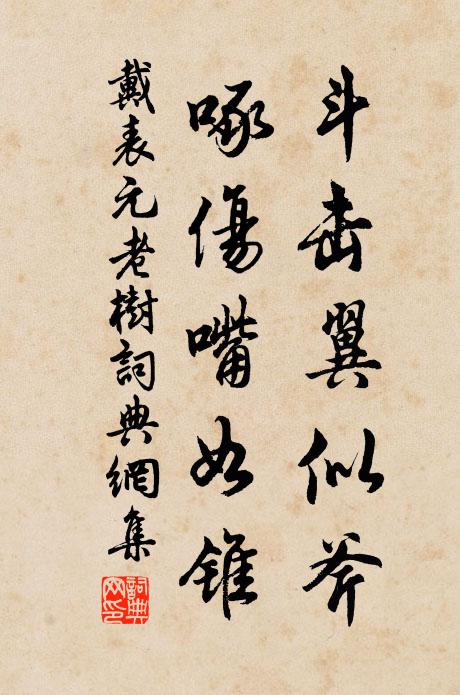 斗击翼似斧
啄傷嘴如錐
戴表元老樹詞典網集
詞典網印